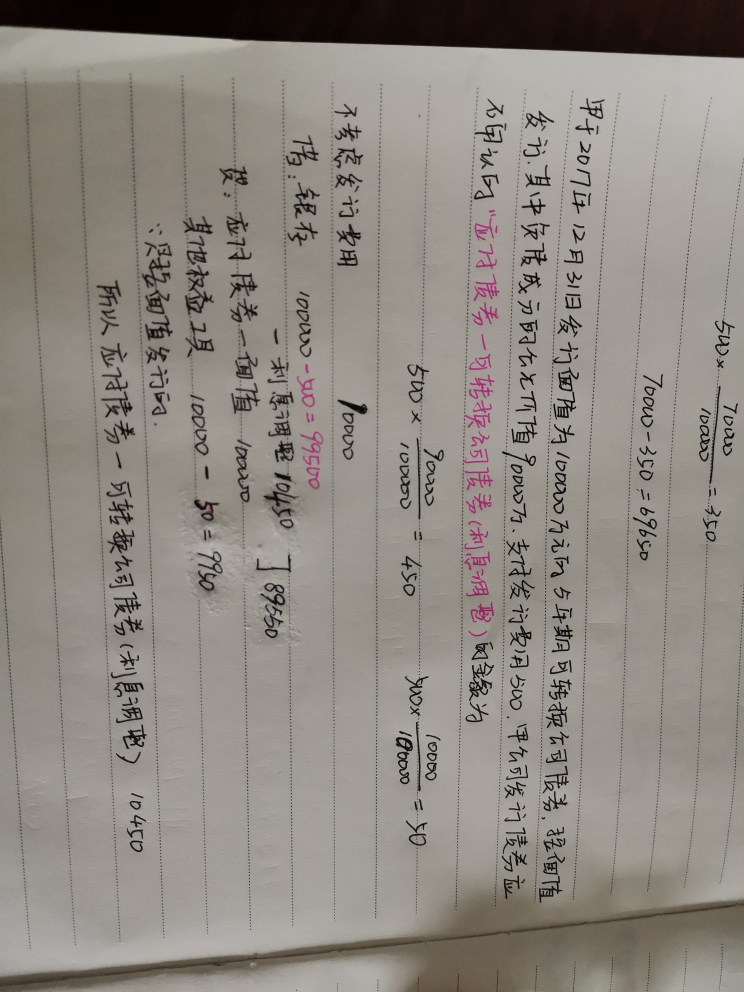 500× 70000/100000 = 350
70000-350=69650
甲于2017年12月31日发行面值为100000万元的5年期可转换公司债券,按面值
发行.其中负债成分的公允价值90000万.支付发行费用500.甲公司发行债券应
确认的"应付债券一可转换公司债券(利息调整)的金额为
500× 90000/100000 = 450 500× 10000/100000 = 50
不考虑发行费用 90000
借:银存 100000-500=99500
一利息调整 10450 ] 89550
贷:应付债券一面值 100000
其他权益工具 10000-50=9950
∵是按面值发行的.
所以 应付债券一可转换公司债券(利息调整) 10450